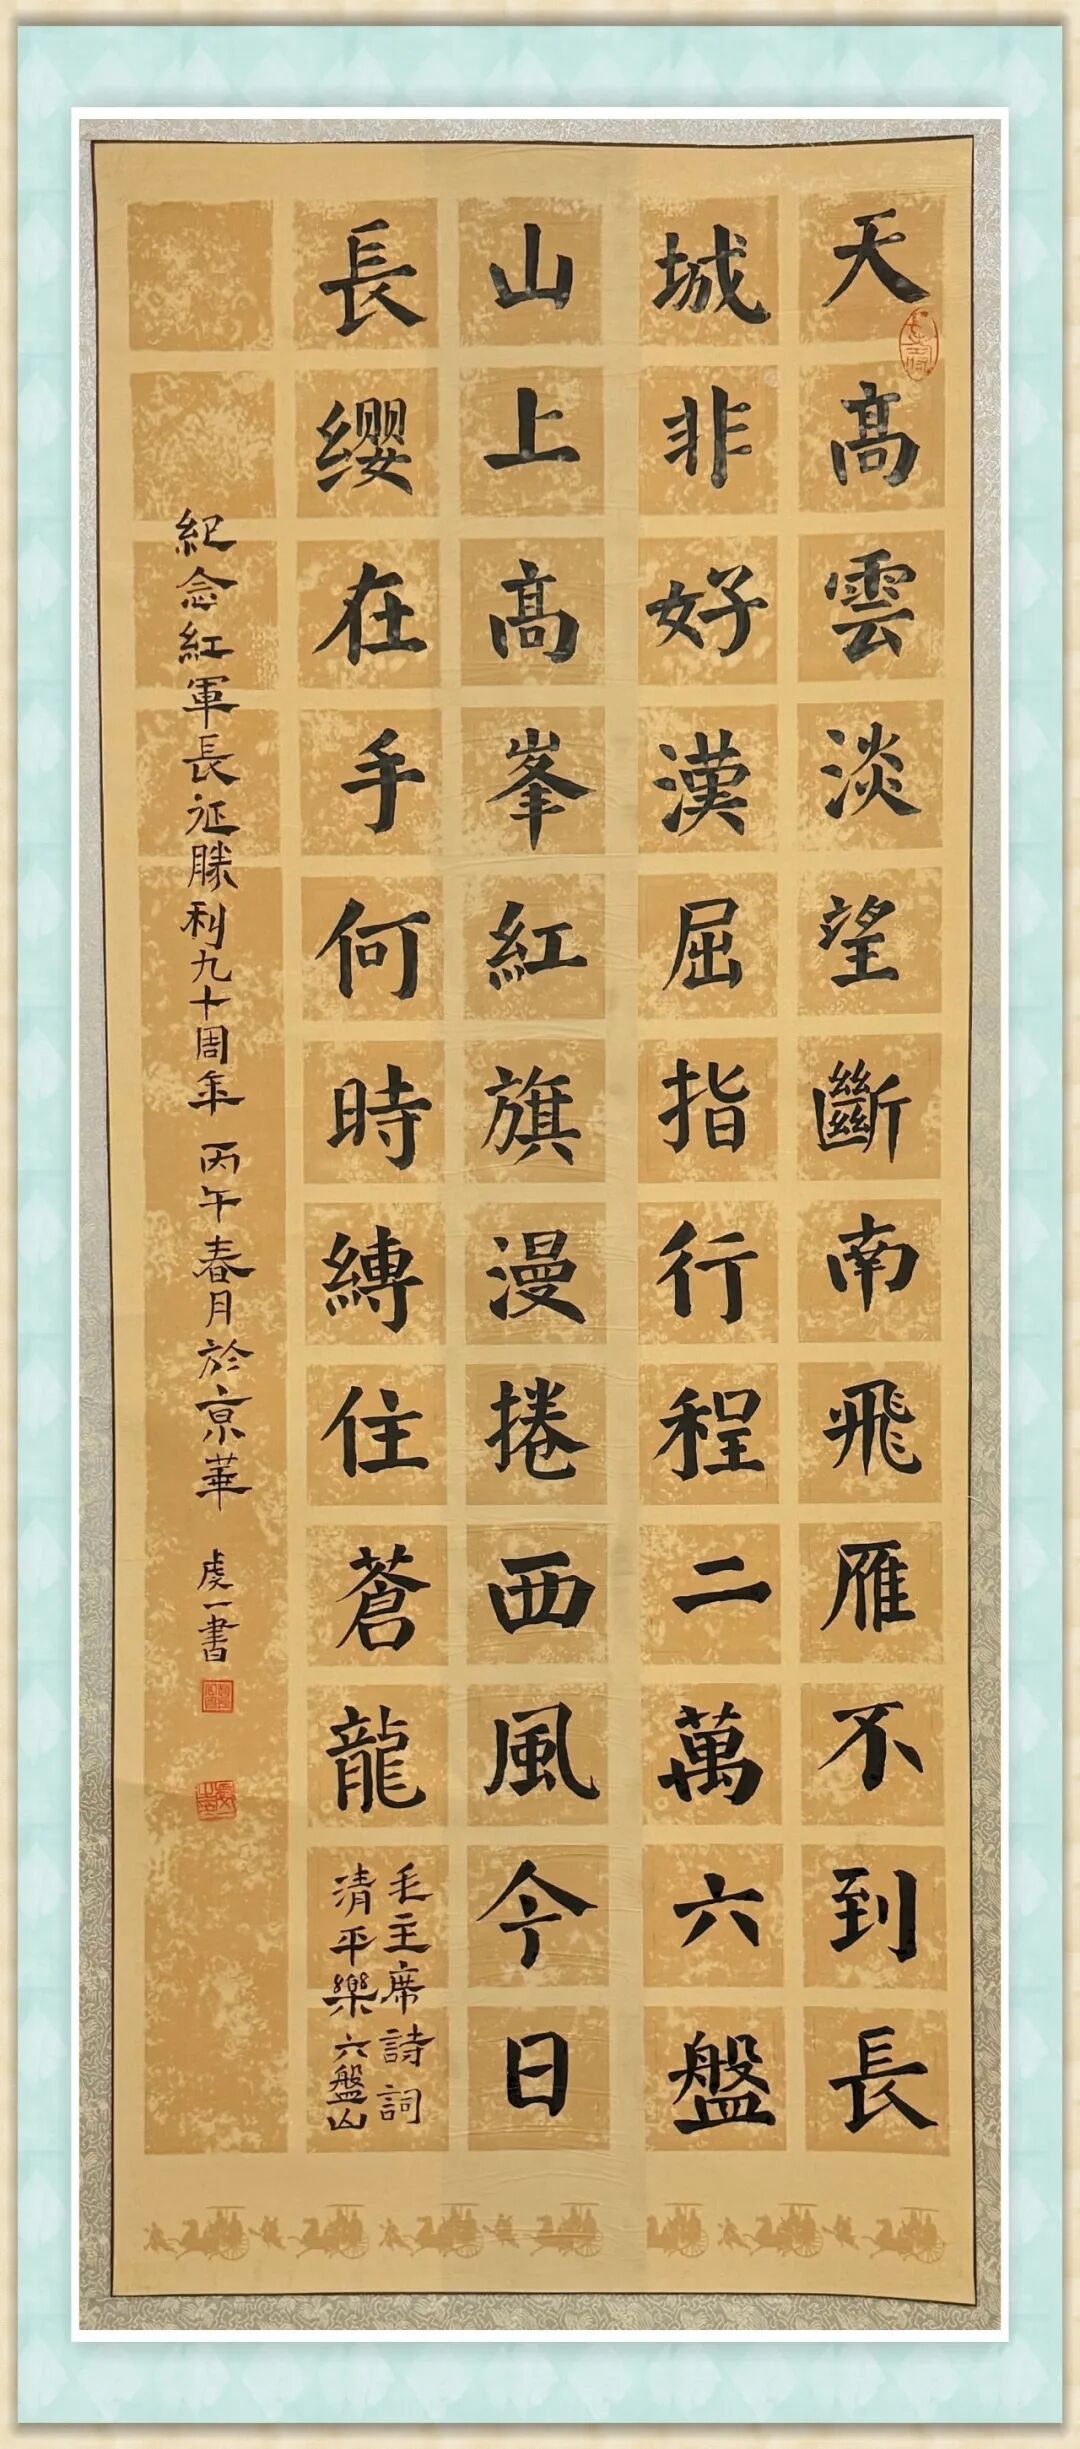 天高雲淡望斷南飛雁不到長
城非好漢屈指行程二萬六盤
山上高峯紅旗漫捲西風今日
長缨在手何時縛住蒼龍
毛主席詩詞
清平樂六盤山
紀念紅軍長征勝利九十周年 丙午春月於京華 虔一書